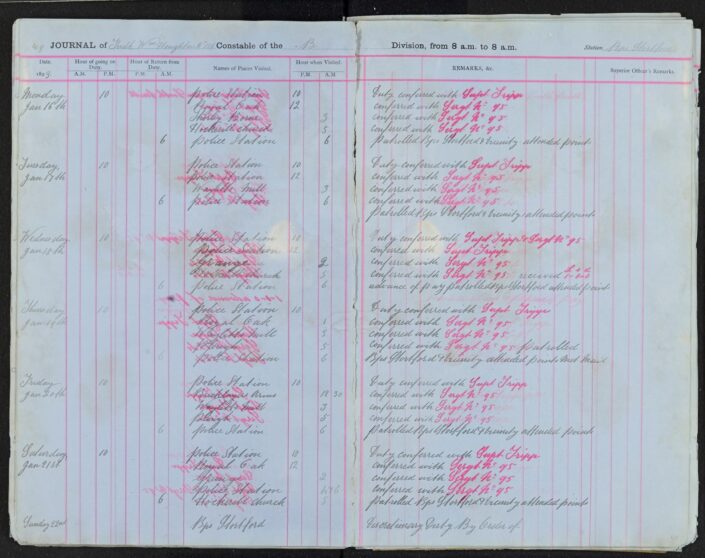 49 JOURNAL of Constable of the B Division, from 8 a.m. to 8 a.m. Station Bps Stortford
Date. Hour of going on Duty. Hour of Return from Duty. Names of Places Visited. Hour when Visited. REMARKS, &c. Superior Officer's Remarks.
A.M. P.M. P.M. A.M. P.M. A.M.
Monday 10 Police Station 10 Duty conferred with Supt Tripp
Jan 16th Royal Oak 12 conferred with Sergt No 95
3 conferred with Sergt No 95
Hockerill Church 5 conferred with Sergt No 95
6 Police Station 6 Patrolled Bps Stortford & vicinity attended points
Tuesday 10 Police Station 10 Duty conferred with Supt Tripp
Jan 17th Police Station 12 conferred with Sergt No 95
Mill 3 conferred with Sergt No 95
6 Police Station 6 conferred with Sergt No 95
Patrolled Bps Stortford & vicinity attended points
Wednesday 10 Police Station 10 Duty conferred with Supt Tripp & Sergt No 95
Jan 18th Police Station 12 conferred with Supt Tripp
Grange 2 conferred with Sergt No 95
Church 5 conferred with Sergt No 95 received
6 Police Station 6 advance of pay patrolled Bps Stortford attended points
Thursday 10 Police Station 10 Duty conferred with Supt Tripp
Jan 19th Royal Oak 1 conferred with Sergt No 95
Mill 3 conferred with Sergt No 95
5 conferred with Sergt No 95 patrolled
6 Police Station 6 Bps Stortford & vicinity attended points
Friday 10 Police Station 10 Duty conferred with Supt Tripp
Jan 20th Arms 12 30 conferred with Sergt No 95
Mill 3 conferred with Sergt No 95
5 conferred with Sergt No 95
6 Police Station 6 Patrolled Bps Stortford & vicinity attended points
Saturday 10 Police Station 10 Duty conferred with Supt Tripp
Jan 21st Royal Oak 12 conferred with Sergt No 95
Grange 2 conferred with Sergt No 95
Police Station conferred with Sergt No 95
6 Hockerill Church 5 patrolled Bps Stortford & vicinity attended points
Sunday 22nd Bps Stortford Duty By Order of